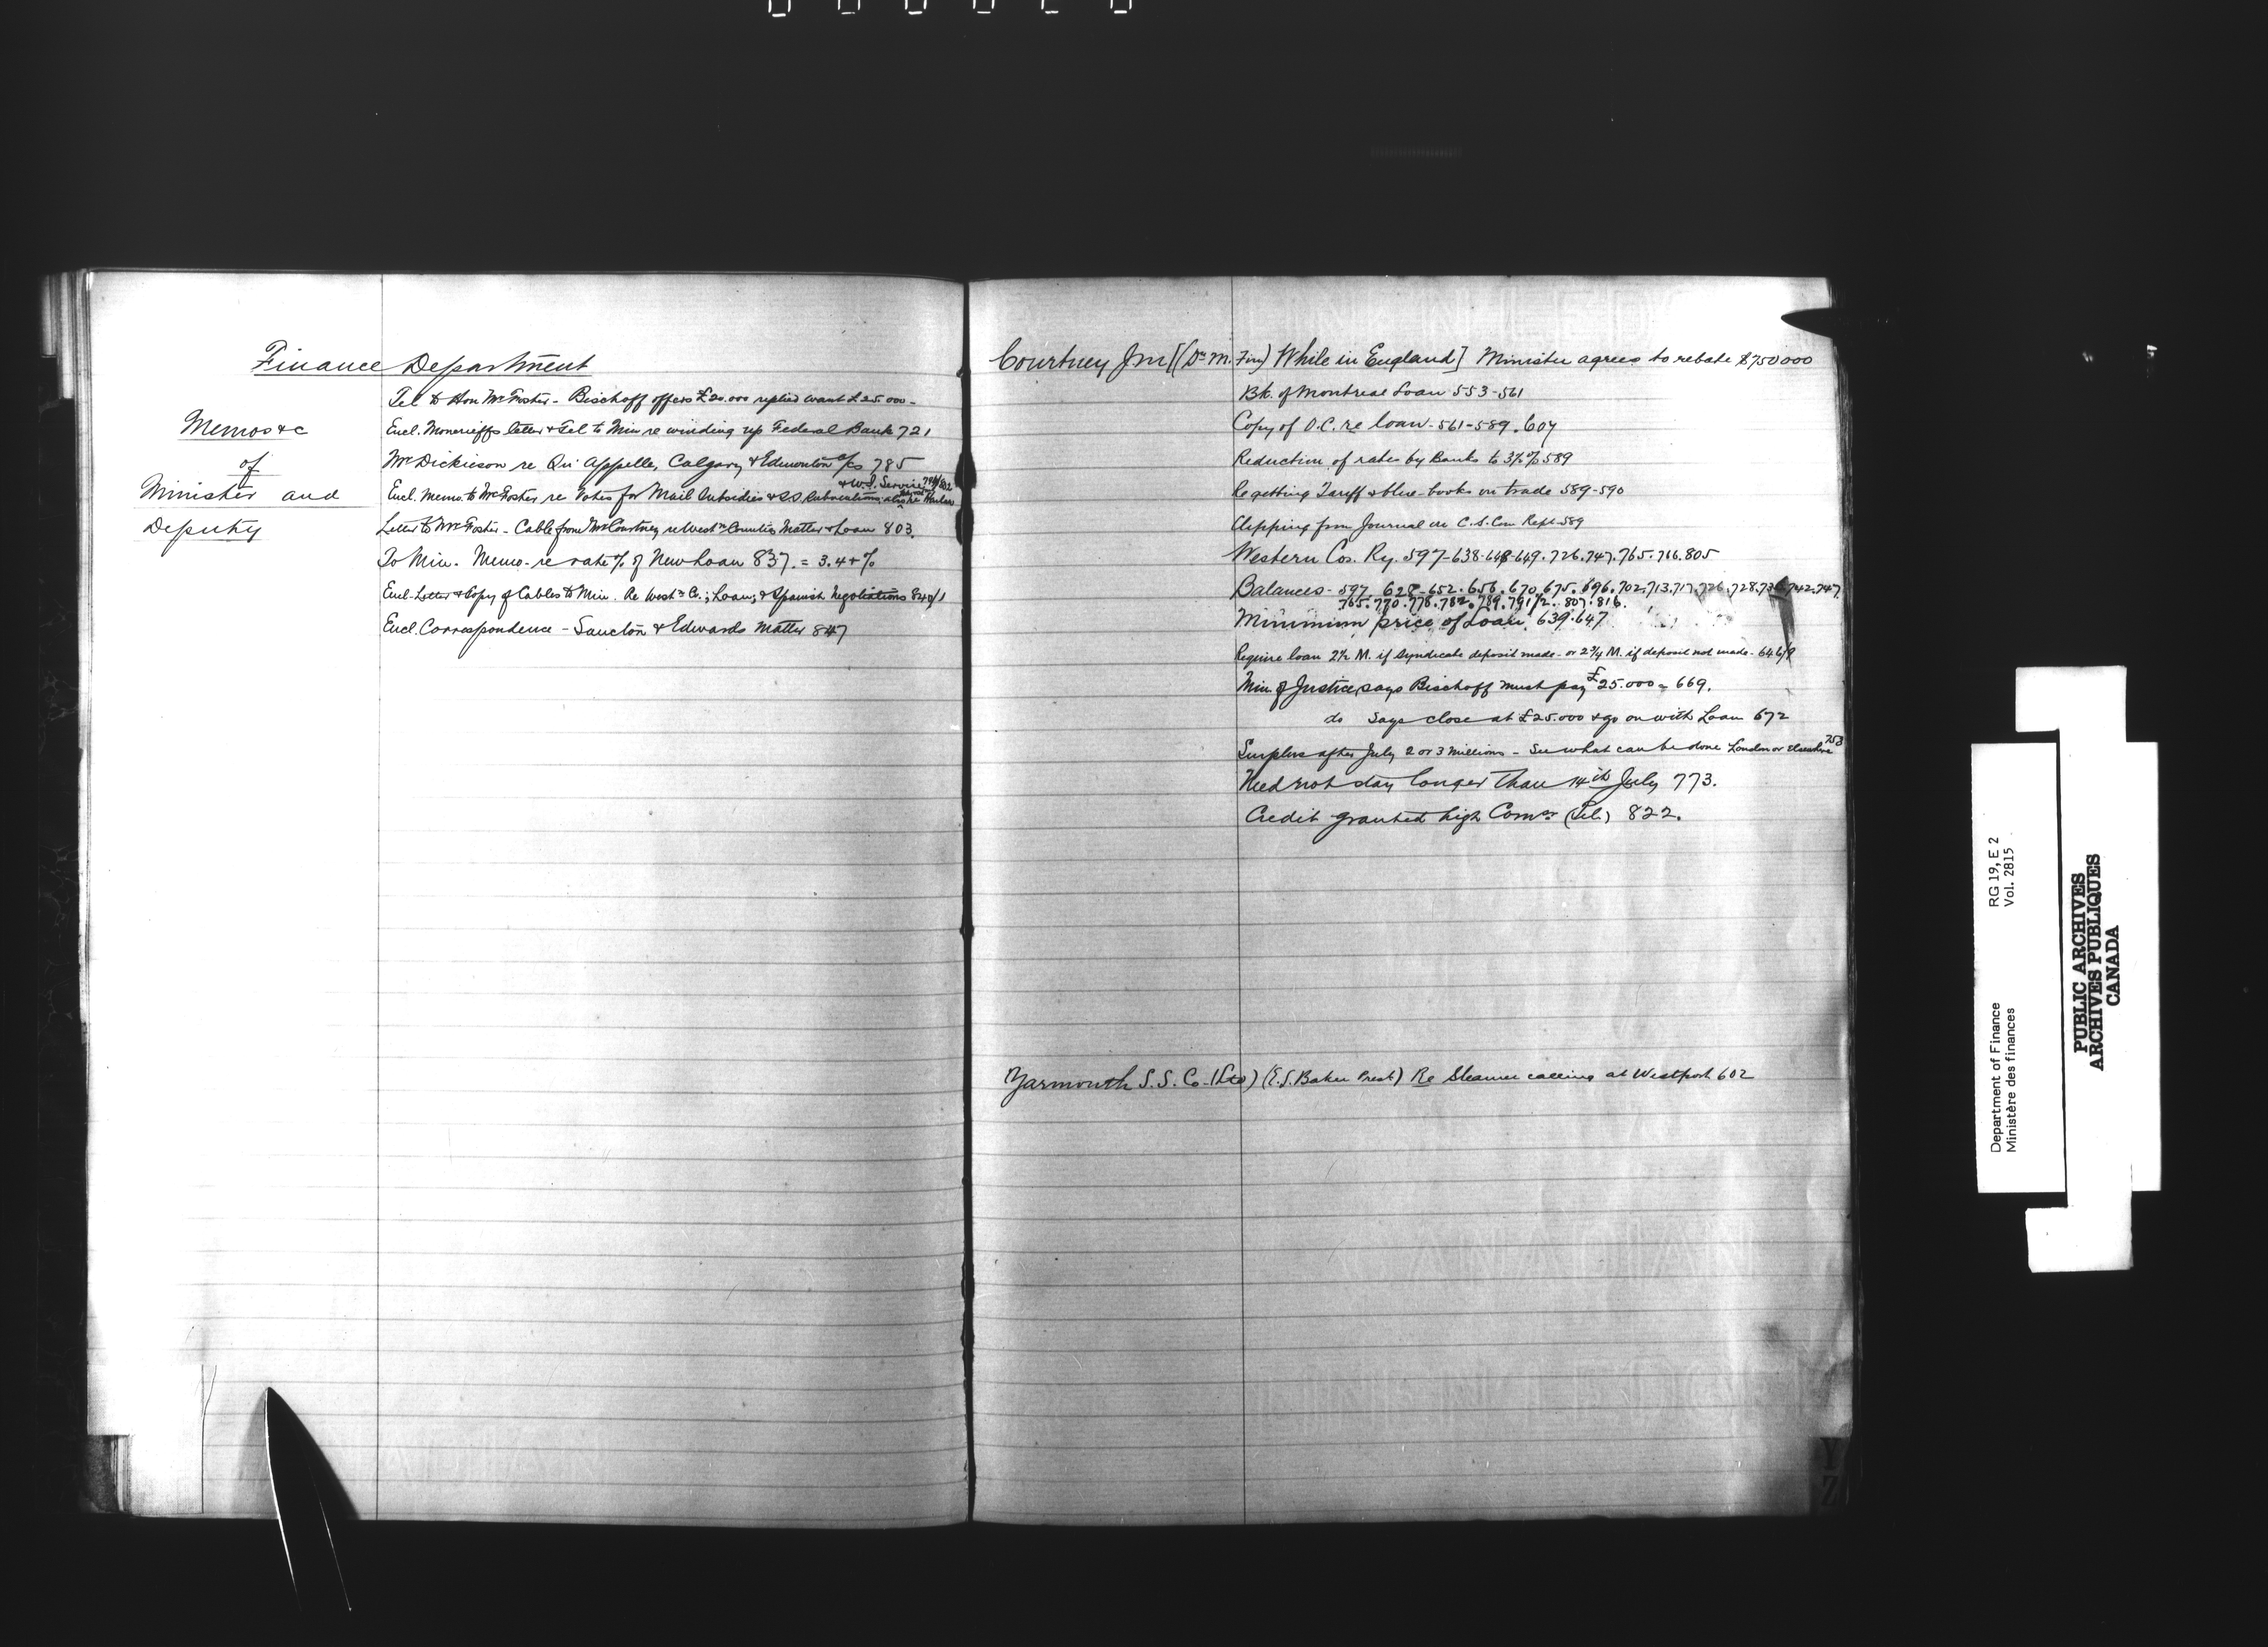 Finance Department
Tel to Hon Mr Foster - Bischoff offers £20.000 replied want £25.000 -
Memos &c
of
Minister and
Deputy
Encl. Moncrieffs letter & Tel to Min re winding up Federal Bank 721
Mr Dickieson re Qu'Appelle, Calgary & Edmonton a/cs 785
& W.I. Service
Encl. Memo. to Mr Foster re Votes for Mail Subsidies & SS Subventions also re
Letter to Mr Foster - Cable from Mr Courtney re West'n Counties Matter & Loan 803.
To Min. Memo. re rate % of New Loan 837. = 3.4+%
Encl. Letter & Copy of Cables to Min. Re West'n Co.; Loan; & Spanish Negotiations 840/1
Encl. Correspondence - Saucton & Edwards Matter 847
Courtney Jm [(Dy M. Fin) While in England] Minister agrees to rebate $750'000
Bk. of Montreal Loan 553-561
Copy of O.C. re loan - 561-589.607
Reduction of rates by Banks to 3% 589
Re getting Tariff & blue-books on trade 589-590
Clipping from Journal re C.S. Com Rept 589
Western Cos. Ry. 597-638-648-649.726.747.765.716.805
Balances - 597 628-652.656.670.675.696.702.713.717.726.728.736.742.747.
765.770.778.782.789.791/2.807.816.
Minimum price of Loan 639.647
Require loan 2½ M. if Syndicate deposit made - or 2¾ M. if deposit not made - 646/9
Min. of Justice says Bischoff must pay £25.000 = 669.
do says close at £25.000 & go on with Loan 672
Surplus after July 2 or 3 Millions - See what can be done London or elsewhere 753
Need not stay longer than 14th July 773.
Credit granted high Comr (Tel.) 822.
Yarmouth S.S. Co. (Ltd) (E.S. Baker Prest) Re Steamer calling at Westport 602
Y
Z
Department of Finance RG 19, E 2
Ministère des finances Vol. 2815
PUBLIC ARCHIVES
ARCHIVES PUBLIQUES
CANADA